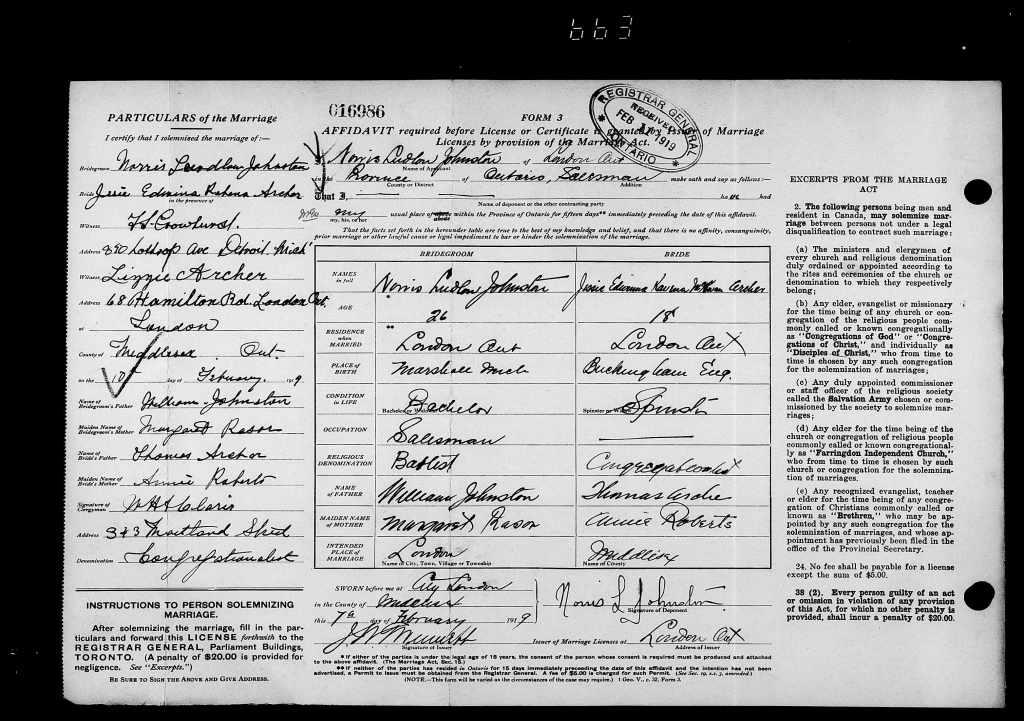 663
016986
PARTICULARS of the Marriage
I certify that I solemnised the marriage of:—
Bridegroom Norris Ludlow Johnston
Bride Jessie Edwina Rahena Archer
in the presence of
Witness Crowhurst.
Address 350 Lothrop Ave Detroit Mich
Witness Lizzie Archer
Address 68 Hamilton Rd. London Ont.
at London
County of Middlesex. Ont.
on the 10 day of February. 1919
Name of Bridegroom's Father William Johnston
Maiden Name of Bridegroom's Mother Margaret Rason
Name of Bride's Father Thomas Archer
Maiden Name of Bride's Mother Annie Roberts
Signature of Clergyman
Address Maitland Street
Denomination Congregationalist
INSTRUCTIONS TO PERSON SOLEMNIZING MARRIAGE.
After solemnizing the marriage, fill in the particulars and forward this LICENSE forthwith to the
REGISTRAR GENERAL, Parliament Buildings,
TORONTO. (A penalty of $20.00 is provided for
negligence. See "Excerpts.")
BE SURE TO SIGN THE ABOVE AND GIVE ADDRESS.
FORM 3
AFFIDAVIT required before License or Certificate is granted by Issuer of Marriage
Licenses by provision of the Marriage Act.
REGISTRAR GENERAL
RECEIVED
FEB 1919
ONTARIO
I, Norris Ludlow Johnston of London Ont
Name of Applicant
in the Province of Ontario, Salesman make oath and say as follows:—
County or District Addition
That I,
Name of deponent or the other contracting party
my usual place of abode within the Province of Ontario for fifteen days** immediately preceding the date of this affidavit.
my, his, or her
That the facts set forth in the hereunder table are true to the best of my knowledge and belief, and that there is no affinity, consanguinity,
prior marriage or other lawful cause or legal impediment to bar or hinder the solemnization of the marriage.
BRIDEGROOM BRIDE
NAMES in full Norris Ludlow Johnston Jessie Edwina Archer
AGE 26 18
RESIDENCE when MARRIED London Ont London Ont
PLACE OF BIRTH Marshall Mich Buckingham Eng.
CONDITION IN LIFE Bachelor Spinster
OCCUPATION Salesman —
RELIGIOUS DENOMINATION Baptist Congregationalist
NAME OF FATHER William Johnston Thomas Archer
MAIDEN NAME OF MOTHER Margaret Rason Annie Roberts
INTENDED PLACE OF MARRIAGE London Middlesex
Name of City, Town, Village or Township Name of County
SWORN before me at City London
in the County of Middlesex
this 7th day of February 1919
Norris L Johnston.
Signature of Deponent
Signature of Issuer
Issuer of Marriage Licenses at London Ont
Address of Issuer
* If either of the parties is under the legal age of 18 years, the consent of the person whose consent is required must be produced and attached
to the above affidavit. (The Marriage Act, Sec. 15.)
** If neither of the parties has resided in Ontario for 15 days immediately preceding the date of this affidavit and the intention has not been
advertised, a Permit to Issue must be obtained from the Registrar General. A fee of $5.00 is charged for such Permit. (See Sec. 19, s.s. 3, amended.)
(NOTE.—This form will be varied as the circumstances of the case may require.) 1 Geo. V., c. 32, Form 3.
EXCERPTS FROM THE MARRIAGE
ACT
2. The following persons being men and
resident in Canada, may solemnize marriage between persons not under a legal
disqualification to contract such marriage:
(a) The ministers and clergymen of
every church and religious denomination
duly ordained or appointed according to
the rites and ceremonies of the church or
denomination to which they respectively
belong;
(b) Any elder, evangelist or missionary
for the time being of any church or congregation of the religious people commonly called or known congregationally
as "Congregations of God" or "Congregations of Christ," and individually as
"Disciples of Christ," who from time to
time is chosen by any such congregation
for the solemnization of marriages;
(c) Any duly appointed commissioner
or staff officer of the religious society
called the Salvation Army chosen or commissioned by the society to solemnize marriages;
(d) Any elder for the time being of any
church or congregation of religious people
commonly called or known congregationally as "Farringdon Independent Church,"
who from time to time is chosen by such
church or congregation for the solemnization of marriages.
(e) Any recognized evangelist, teacher
or elder for the time being of any congregation of Christians commonly called or
known as "Brethren," who may be appointed by any such congregation for the
solemnization of marriages, and whose appointment has previously been filed in the
office of the Provincial Secretary.
24. No fee shall be payable for a license
except the sum of $5.00.
38 (2). Every person guilty of an act
or omission in violation of any provision
of this Act, for which no other penalty is
provided, shall incur a penalty of $20.00.